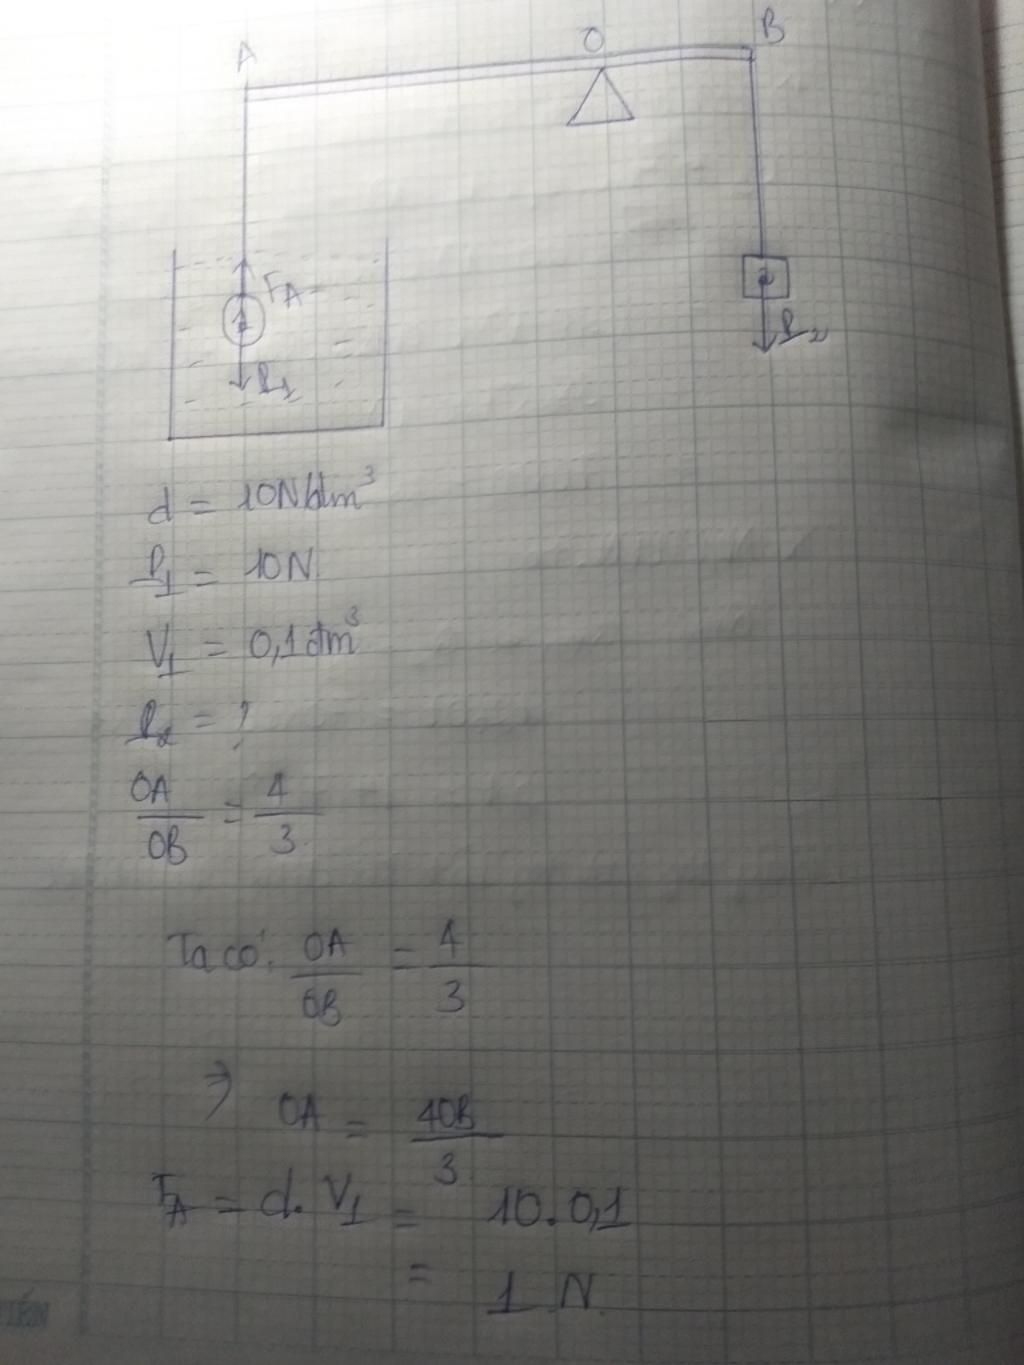 A O B
F_A
P_1
P_2
d = 10N/dm³
P_1 = 10N
V_1 = 0,1dm³
P_2 = ?
OA/OB = 4/3
Ta có: OA/OB = 4/3
⇒ OA = 4OB/3
F_A = d. V_1 = 10.0,1
= 1 N